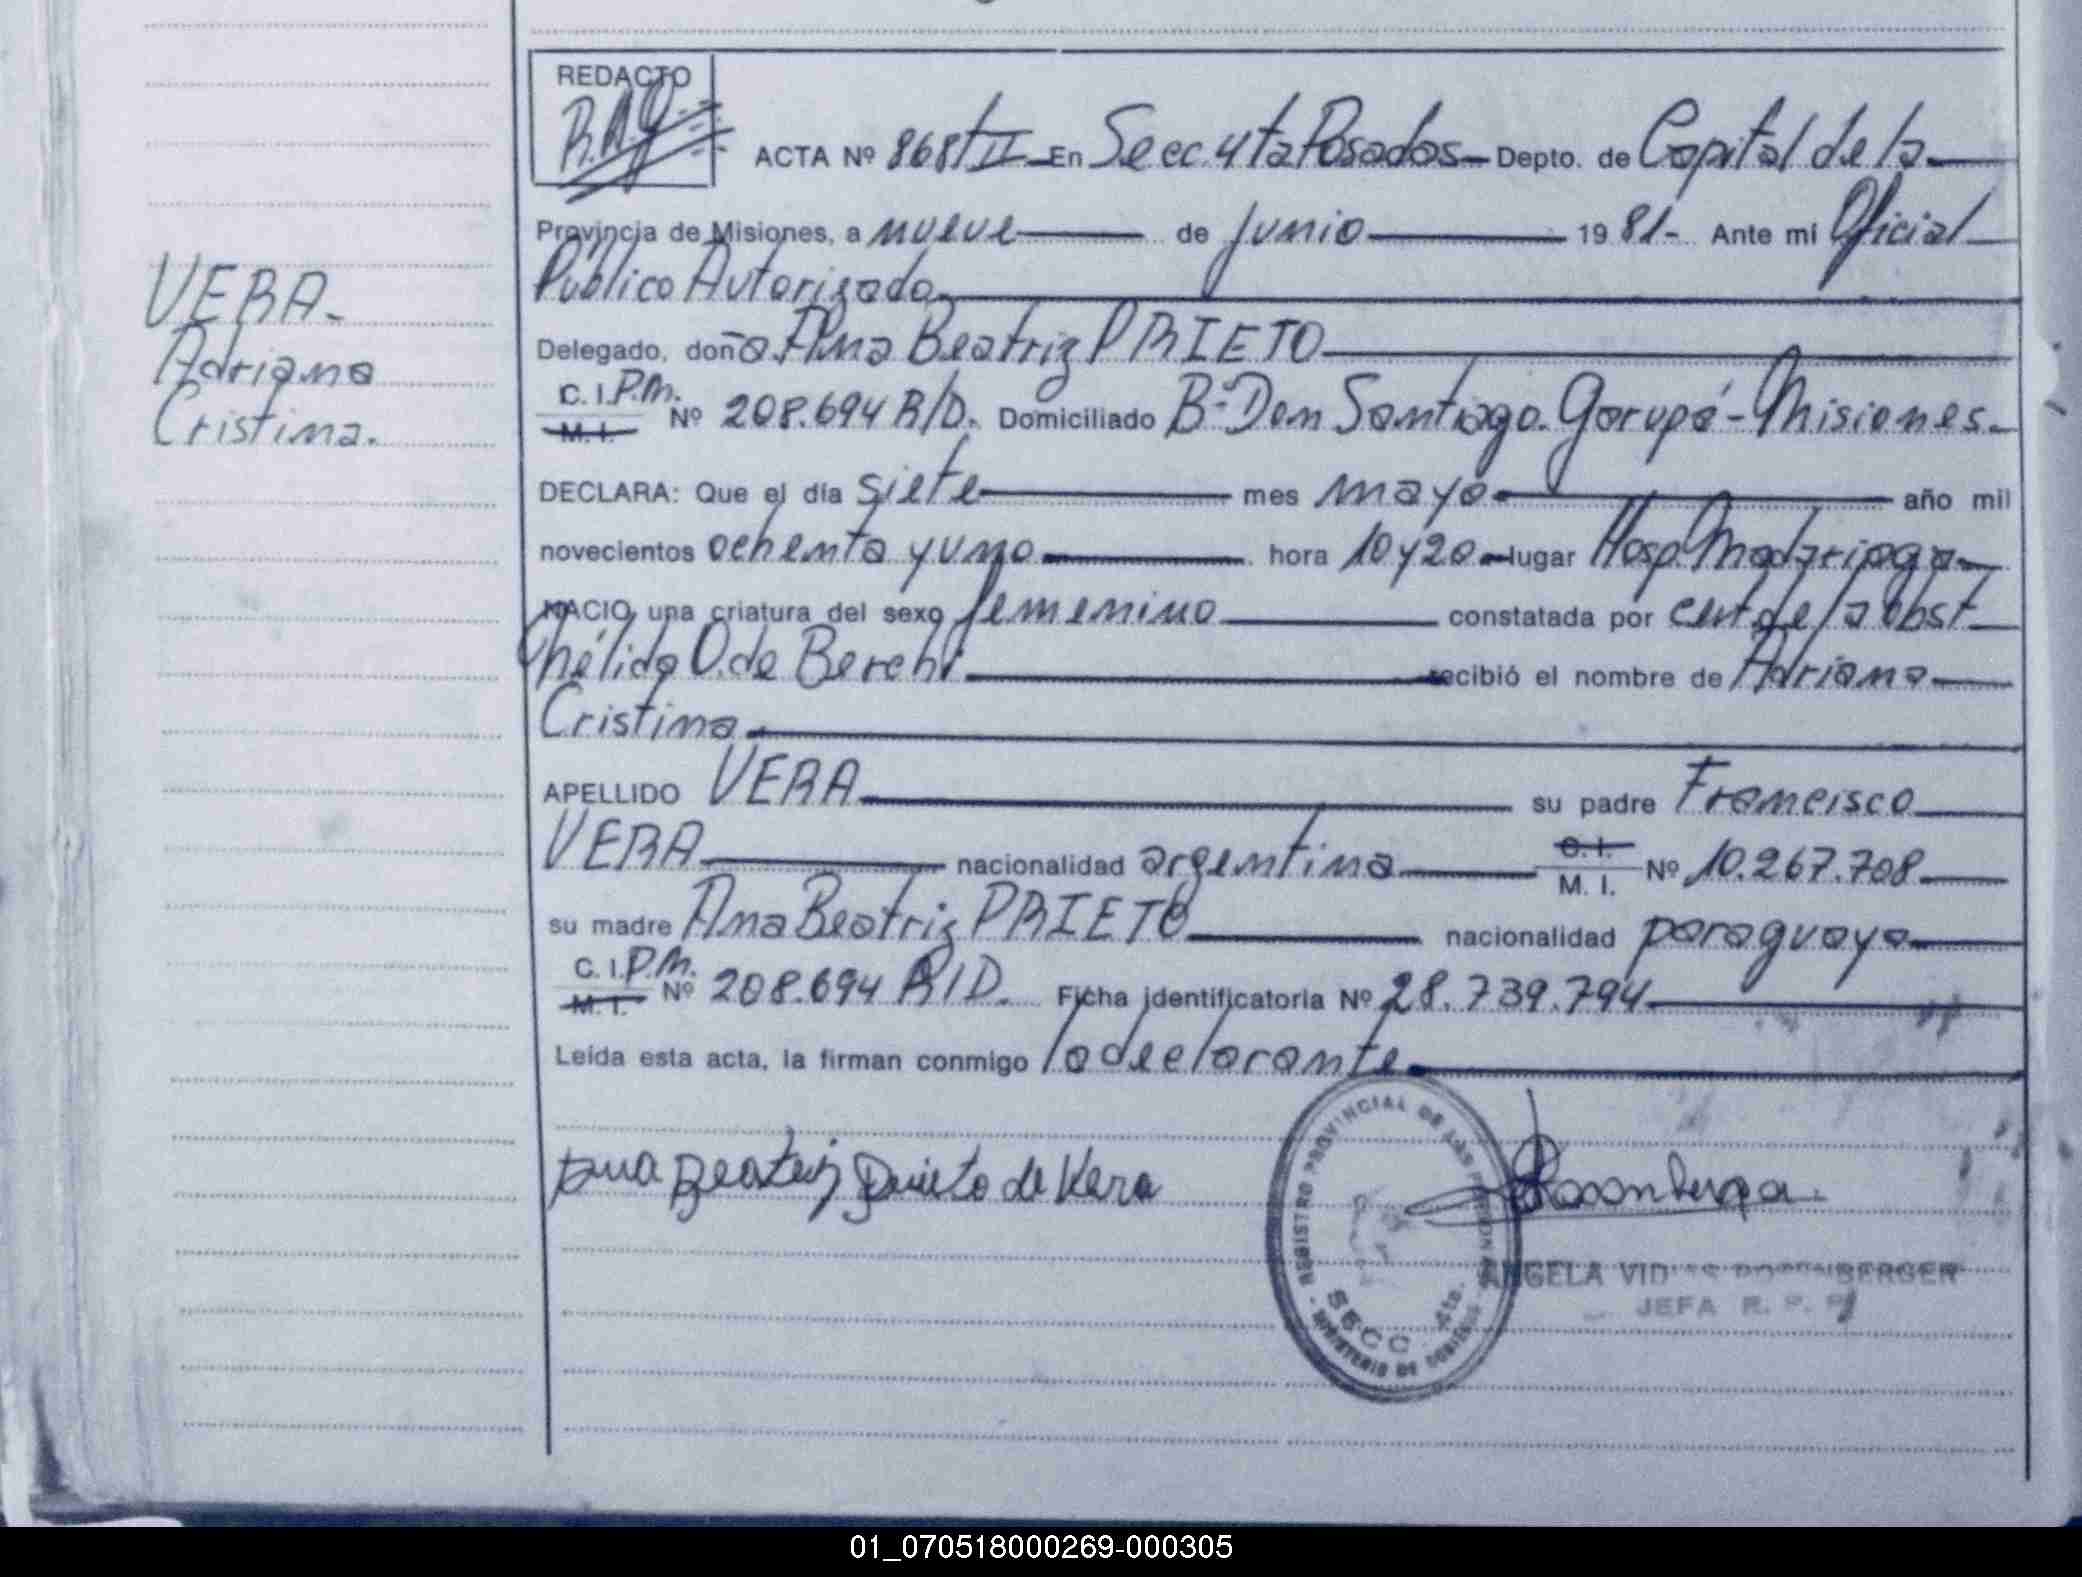 REDACTO
R.A.G.
ACTA Nº 868/TII En Secc. 4ta Posadas Depto. de Capital de la
Provincia de Misiones, a nueve de junio 1981- Ante mi Oficial
Público Autorizado
Delegado, doña Ana Beatriz PRIETO
C. I. P.M.
M. I.
Nº 208.694 R/D. Domiciliado Bº Don Santiago. Garupá - Misiones.
DECLARA: Que el día siete mes mayo año mil
novecientos ochenta y uno hora 10 y 20 lugar Hosp. Madariaga
NACIO una criatura del sexo femenino constatada por cert de la obst
Nélida O. de Berchi recibió el nombre de Adriana
Cristina
VERA
Adriana
Cristina.
APELLIDO VERA su padre Francisco
VERA nacionalidad argentina C. I. M. I. Nº 10.267.708
su madre Ana Beatriz PRIETO nacionalidad paraguaya
C. I. P.M.
M. I.
Nº 208.694 R/D. Ficha identificatoria Nº 28.739.794
Leída esta acta, la firman conmigo la declarante
Ana Beatriz Prieto de Vera
REGISTRO PROVINCIAL DE LAS PERSONAS
SECC. 4ta.
MINISTERIO DE GOBIERNO
ANGELA ROSENBERGER
JEFA R. P. P.
01_070518000269-000305